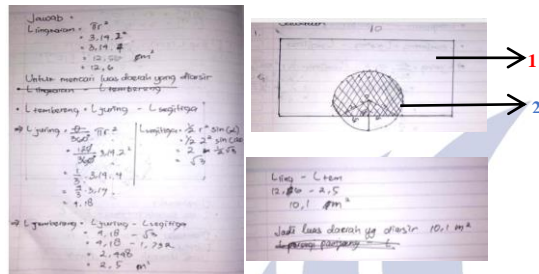 Jawab :
L lingkaran = πr²
= 3,14 . 2²
= 3,14 . 4
= 12,56 m²
= 12,6
Untuk mencari luas daerah yang diarsir
L lingkaran - L tembereng
• L tembereng = L juring - L segitiga
⇒ L juring = /360° πr²
= 120/360° 3,14 . 2²
= 1/3 . 3,14 . 4
= 4/3 . 3,14
= 4,18
L segitiga = ½ r² sin(α)
= ½ 2² sin(120
= 2 ½√3
= √3
⇒ L tembereng = L juring - L segitiga
= 4,18 - √3
= 4,18 - 1,732
= 2,448
= 2,5 m²
10
1
2
L ling - L tem
12,6 - 2,5
10,1 m²
Jadi luas daerah yg diarsir 10,1 m²